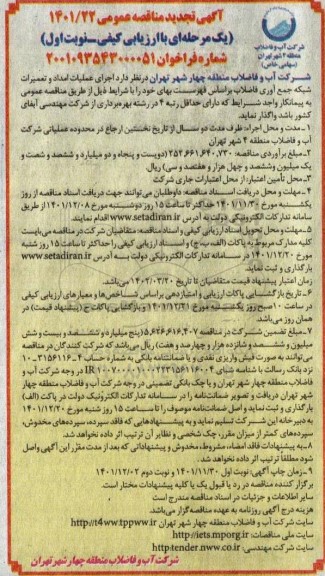 آگهی تجدید مناقصه عمومی ۱۴۰۱/۲۲
(یک مرحله‌ای با ارزیابی کیفی ـ نوبت اول)
شماره فراخوان ۲۰۰۱۰۹۳۵۴۳۰۰۰۰۵۱
شرکت آب و فاضلاب
منطقه ۴ شهر تهران
(سهامی خاص)
شرکت آب و فاضلاب منطقه چهار شهر تهران در نظر دارد اجرای عملیات امداد و تعمیرات
شبکه جمع آوری فاضلاب بر اساس فهرست بهای خود را با شرایط ذیل از طریق مناقصه عمومی
به پیمانکار واجد شرایط که دارای حداقل رتبه ۴ در رشته بهره‌برداری از شرکت مهندسی آبفای
کشور باشد واگذار نماید.
۱ـ مدت و محل اجرا: ظرف مدت دو سال از تاریخ نخستین ارجاع در محدوده عملیاتی شرکت
آب و فاضلاب منطقه ۴ شهر تهران
۲ـ مبلغ برآوردی مناقصه: ۲۵۲.۶۶۱.۶۴۰.۷۳۰ (دویست و پنجاه و دو میلیارد و ششصد و شصت و
یک میلیون و ششصد و چهل هزار و هفتصد و سی) ریال.
۳ـ محل تأمین اعتبار: از محل اعتبارات جاری شرکت
۴ـ مهلت و محل دریافت اسناد مناقصه: داوطلبان می‌توانند جهت دریافت اسناد مناقصه از روز
یکشنبه مورخ ۱۴۰۱/۱۱/۳۰ حداکثر تا ساعت ۱۵ روز دوشنبه مورخ ۱۴۰۱/۱۲/۰۸ از طریق
سامانه تدارکات الکترونیکی دولت به آدرس www.setadiran.ir اقدام نمایند.
۵ـ مهلت و محل تحویل اسناد ارزیابی کیفی و اسناد مناقصه: متقاضیان شرکت در مناقصه می‌بایست
کلیه مدارک مربوط به پاکات (الف، ب، ج) و اسناد ارزیابی کیفی را حداکثر تا ساعت ۱۵ روز شنبه
مورخ ۱۴۰۱/۱۲/۲۰ در سامانه تدارکات الکترونیکی دولت به آدرس www.setadiran.ir
بارگذاری و ثبت نمایند.
زمان اعتبار پیشنهاد قیمت متقاضیان تا تاریخ ۱۴۰۲/۰۳/۲۰ می‌باشد.
۶ـ تاریخ بازگشایی پاکات ارزیابی و امتیازدهی بر اساس شاخص‌ها و معیارهای ارزیابی کیفی
در ساعت ۱۰ صبح روز یکشنبه مورخ ۱۴۰۱/۱۲/۲۱ و بازگشایی پاکات ج (پیشنهاد قیمت) در
همان روز می‌باشد.
۷ـ مبلغ تضمین شرکت در مناقصه ۵.۶۲۶.۶۱۶.۴۰۷ (پنج میلیارد و ششصد و بیست و شش
میلیون و ششصد و شانزده هزار و چهارصد و هفت) ریال می‌باشد که شرکت کنندگان در مناقصه
می‌توانند به صورت فیش واریزی نقدی و یا ضمانتنامه بانکی به شماره حساب
نزد بانک رسالت با شناسه شبای در وجه شرکت آب و
فاضلاب منطقه چهار شهر تهران و یا چک بانکی تضمینی در وجه شرکت آب و فاضلاب منطقه چهار
شهر تهران دریافت و تصویر ضمانتنامه را در سامانه تدارکات الکترونیک دولت در پاکت (الف)
بارگذاری و ثبت نماید و اصل ضمانتنامه موصوف را تا ساعت ۱۵ روز شنبه مورخ ۱۴۰۱/۱۲/۲۰
به دبیرخانه این شرکت تسلیم نماید و به پیشنهادهایی که فاقد سپرده، سپرده‌های مخدوش،
سپرده‌های کمتر از میزان مقرر، چک شخصی و نظایر آن ترتیب اثر داده نخواهد شد.
۸ـ به پیشنهادات فاقد امضاء، مشروط، مخدوش و پیشنهاداتی که بعد از مدت مقرر این آگهی واصل
شود مطلقاً ترتیب اثر داده نخواهد شد.
۹ـ زمان چاپ آگهی: نوبت اول ۱۴۰۱/۱۱/۳۰ و نوبت دوم ۱۴۰۱/۱۲/۰۲
برگزار کننده مناقصه در رد یا قبول یک یا کلیه پیشنهادات مختار است.
سایر اطلاعات و جزئیات در اسناد مناقصه مندرج است
هزینه درج آگهی روزنامه به عهده مناقصه گزار می‌باشد.
سایت شرکت آب و فاضلاب منطقه چهار شهر تهران http://t4ww.tppww.ir
سایت ملی مناقصات: http://iets.mporg.ir
سایت شرکت مهندسی: http:tender.nww.co.ir
شرکت آب و فاضلاب منطقه چهار شهر تهران